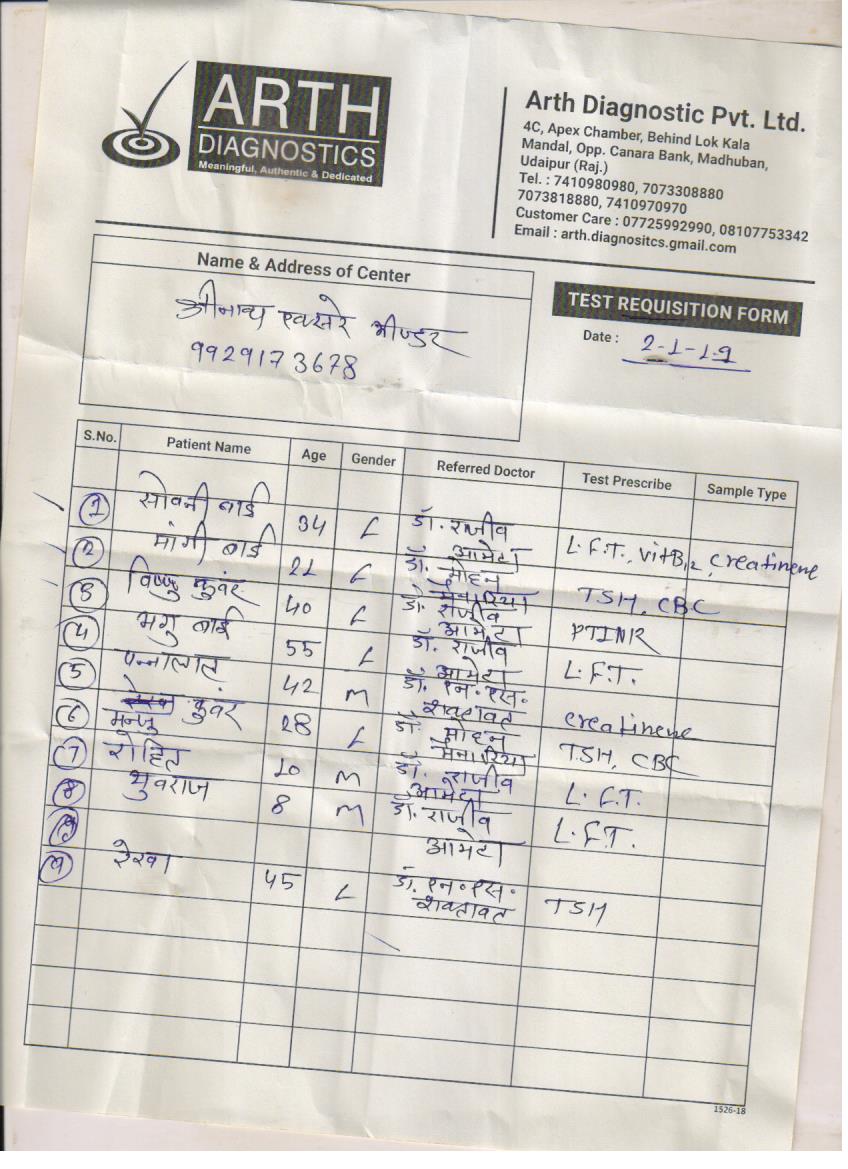 ARTH
DIAGNOSTICS
Meaningful, Authentic & Dedicated
Arth Diagnostic Pvt. Ltd.
4C, Apex Chamber, Behind Lok Kala
Mandal, Opp. Canara Bank, Madhuban,
Udaipur (Raj.)
Tel. : 7410980980, 7073308880
7073818880, 7410970970
Customer Care : 07725992990, 08107753342
Email : arth.diagnositcs.gmail.com
Name & Address of Center
श्रीनाथ एक्सरे भीण्डर
9929173678
TEST REQUISITION FORM
Date : 2-1-19
S.No. Patient Name Age Gender Referred Doctor Test Prescribe Sample Type
1 सोवनी बाई 34 F डॉ. राजीव आमेटा L.F.T., VitB12, Creatinene
2 मांगी बाई 22 F डॉ. मोहन मेनारिया TSH, CBC
3 विष्णु कुंवर 40 F डॉ. राजीव आमेटा PTINR
4 भगु बाई 55 F डॉ. राजीव आमेटा L.F.T.
5 पन्नालाल 42 M डॉ. एन. एस. शक्तावत Creatinene
6 मन्जु कुंवर 28 F डॉ. मोहन मेनारिया TSH, CBC
7 रोहित 20 M डॉ. राजीव आमेटा L.F.T.
8 युवराज 8 M डॉ. राजीव आमेटा L.F.T.
9 रेखा 45 F डॉ. एन. एस. शक्तावत TSH
1526-18